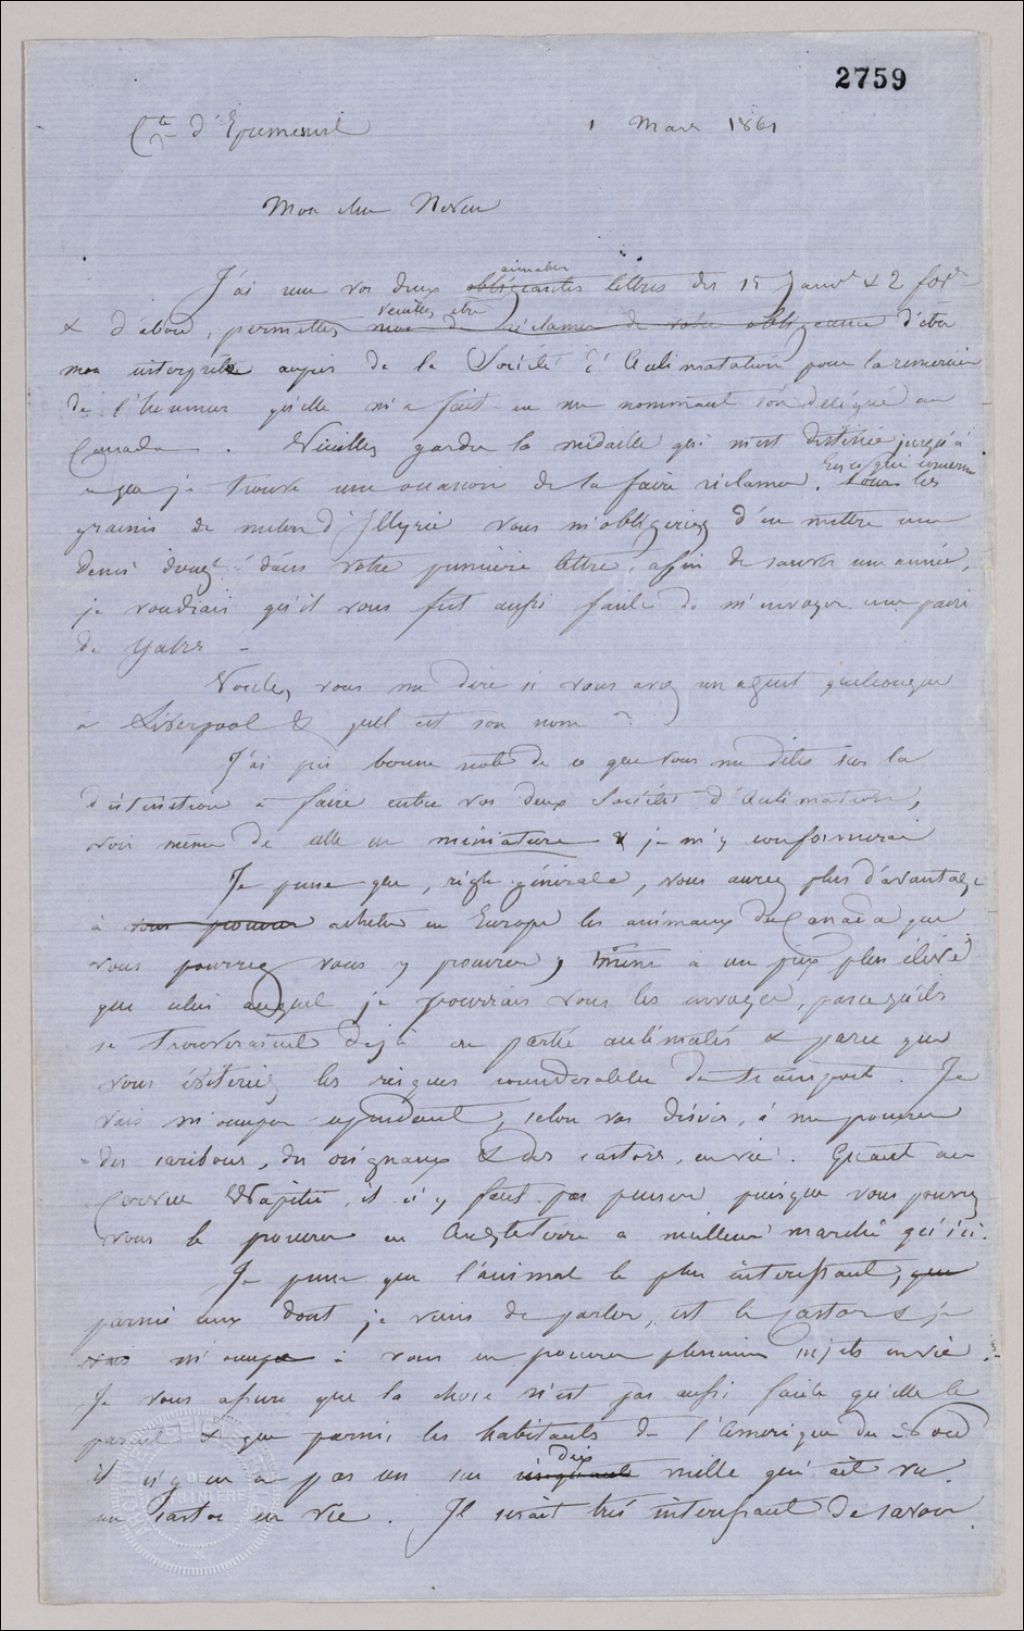 2759
Cte d'Epremesnil 1 Mars 1861
Mon cher Neveu
aimables
J'ai reçu vos deux obligeantes lettres des 15 Janvr & 2 fevr
veuillez etre
& d'abord, permettez moi de réclamer de votre obligeance d'être
mon interprète auprès de la Société d'Acclimatation pour la remercier
de l'honneur qu'elle m'a fait en me nommant son délégué au
Canada. Veuillez garder la médaille qui m'est destinée jusqu'à
ce que je trouve une occasion de la faire réclamer. En ce qui concerne les
graines de melon d'Illyrie vous m'obligeriez d'en mettre une
demi douzne dans votre première lettre, afin de sauver une année,
je voudrais qu'il vous fut aussi facile de m'envoyer une paire
de Yaks -
Voulez vous me dire si vous avez un agent quelconque
à Liverpool & quel est son nom ?
J'ai pris bonne note de ce que vous me dites sur la
distinction à faire entre vos deux Sociétés d'Acclimatation,
voir même de celle en miniature & je m'y conformerai
Je pense que, règle générale, vous aurez plus d'avantage
à vous procurer acheter en Europe les animaux du Canada que
vous pourrez vous y procurer, même à un prix plus élevé
que celui auquel je pourrais vous les envoyer, parcequ'ils
se trouveraient déjà en partie acclimatés & parce que
vous éviteriez les risques considerables du transport. Je
vais m'occuper cependant, selon vos désirs, à me procurer
des caribous, des orignaux & des castors, en vie. Quant au
Cervus Wapiti, il n'y faut pas penser puisque vous pourrez
vous le procurer en Angleterre a meilleur marché qu'ici.
Je pense que l'animal le plus interessant, que
parmi ceux dont je viens de parler, est le castor & je
vais m'occuper à vous en procurer plusieurs sujets en vie.
Je vous assure que la chose n'est pas aussi facile qu'elle le
parait & que parmi les habitants de l'Amerique du Nord
dix
il n'y en a pas un sur cinquante mille qui ait vu
un Castor en vie. Il serait très interessant de savoir